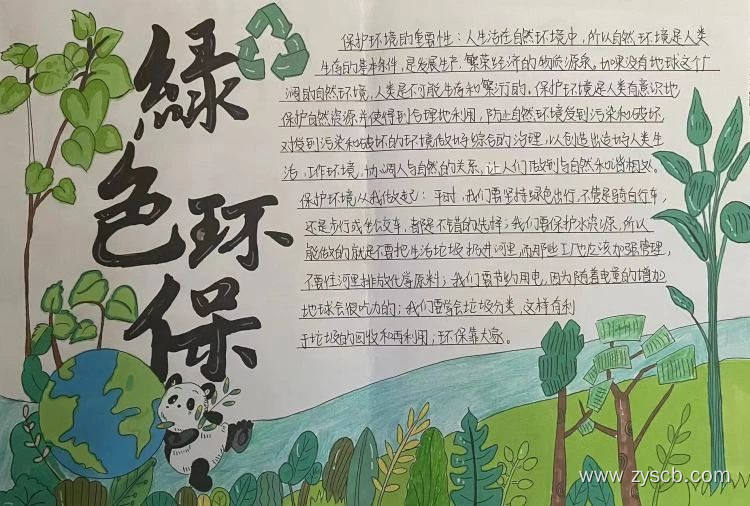 綠
色环
保
保护环境的重要性：人生活在自然环境中，所以自然环境是人类
生存的基本条件，是发展生产、繁荣经济的物质源泉。如果没有地球这个广
阔的自然环境，人类是不可能生存和繁衍的。保护环境是人类有意识地
保护自然资源并使得到合理地利用，防止自然环境受到污染和破坏，
对受到污染和破坏的环境做好综合的治理，以创造出适合人类生
活、工作环境，协调人与自然的关系，让人们做到与自然和谐相处。
保护环境从我做起：平时，我们要坚持绿色出行，不管是骑自行车，
还是步行或坐公交车，都是不错的选择；我们要保护水资源，所以
能做的就是不要把生活垃圾扔进河里，而那些工厂也应该加强管理，
不要往河里排放化学原料；我们要节约用电，因为随着电量的增加
地球会很吃力的；我们要学会垃圾分类，这样有利
于垃圾的回收和再利用，环保靠大家。
www.zyscb.com